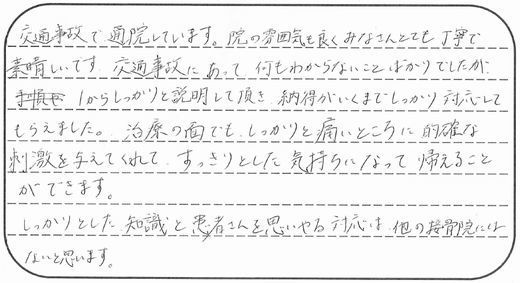 交通事故で通院しています。院の雰囲気も良くみなさんとても丁寧で
素晴しいです。交通事故にあって何もわからないことばかりでしたが、
1からしっかりと説明して頂き納得がいくまでしっかり対応して
もらえました。治療の面でもしっかりと痛いところに的確な
刺激を与えてくれて、すっきりとした気持ちになって帰えること
ができます。
しっかりとした知識と患者さんを思いやる対応は、他の接骨院には
ないと思います。